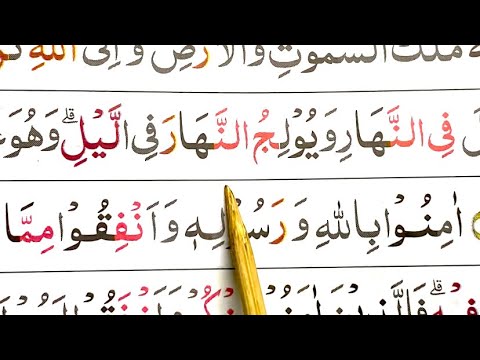 مُلْكُ السَّمٰوٰتِ وَالْاَرْضِ وَاِلَى اللّٰهِ
فِی النَّهَارِ وَیُوْلِجُ النَّهَارَ فِی الَّیْلِ ۗ وَهُوَ
اٰمِنُوْا بِاللّٰهِ وَرَسُوْلِهٖ وَاَنْفِقُوْا مِمَّا
فِیْهِ ۗ فَالَّذِیْنَ اٰمَنُوْا مِنْكُمْ وَاَنْفَقُوْا لَهُمْ